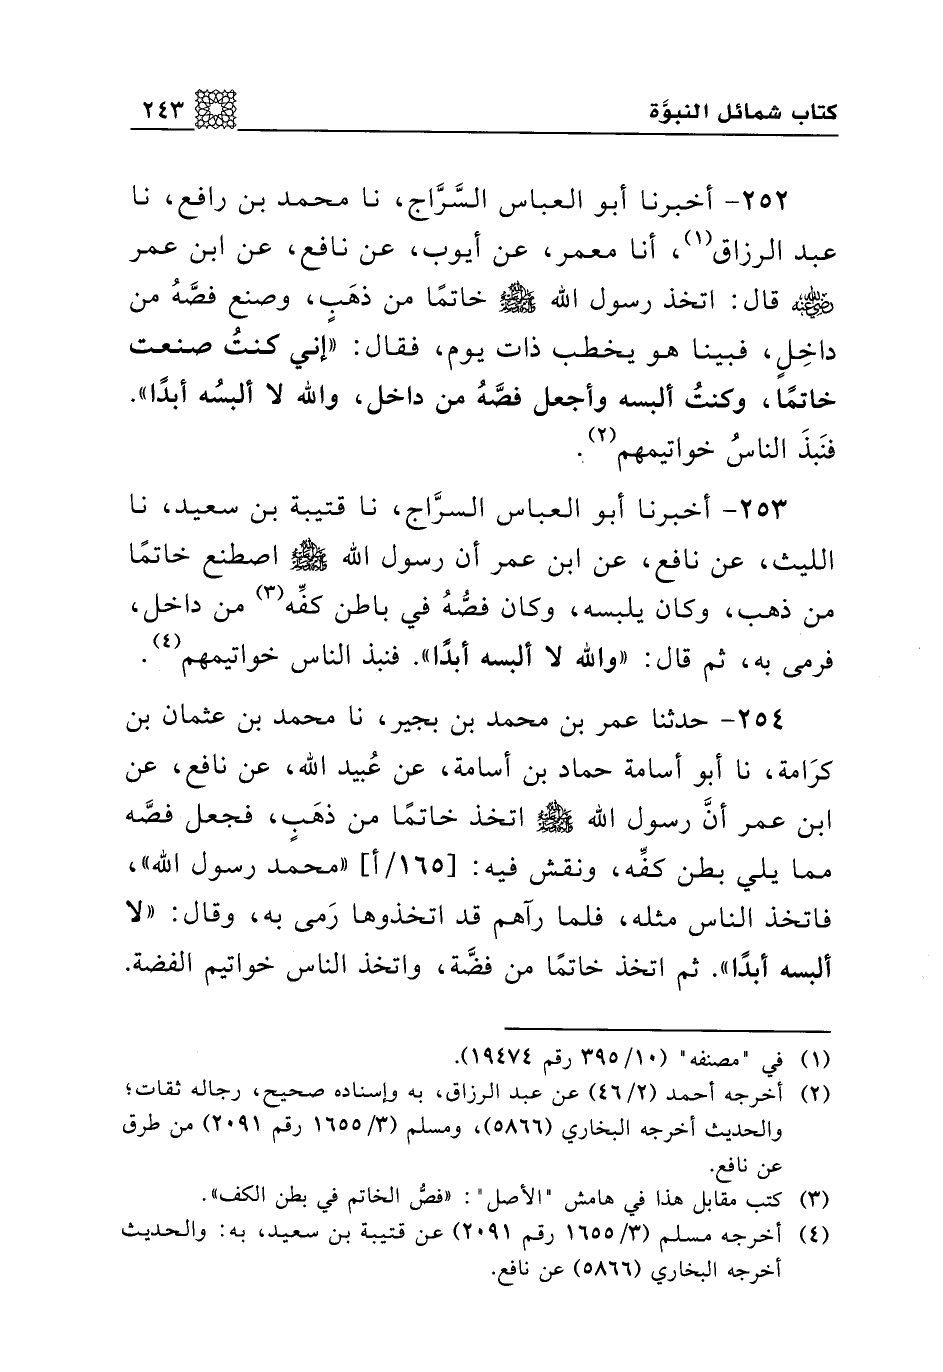 كتاب شمائل النبوَّة ٢٤٣
٢٥٢- أخبرنا أبو العباس السَّرَّاج، نا محمد بن رافع، نا
عبد الرزاق(١)، أنا معمر، عن أيوب، عن نافع، عن ابن عمر
رضي الله عنه قال: اتخذ رسول الله ﷺ خاتمًا من ذهَبٍ، وصنع فصَّهُ من
داخِلٍ، فبينا هو يخطب ذات يوم، فقال: «إني كنتُ صنعت
خاتمًا، وكنتُ ألبسه وأجعل فصَّهُ من داخل، والله لا ألبسُه أبدًا».
فنَبذَ الناسُ خواتيمهم(٢).
٢٥٣- أخبرنا أبو العباس السرَّاج، نا قتيبة بن سعيد، نا
الليث، عن نافع، عن ابن عمر أن رسول الله ﷺ اصطنع خاتمًا
من ذهب، وكان يلبسه، وكان فصُّهُ في باطن كفِّه(٣) من داخل،
فرمى به، ثم قال: «والله لا ألبسه أبدًا». فنبذ الناس خواتيمهم(٤).
٢٥٤- حدثنا عمر بن محمد بن بجير، نا محمد بن عثمان بن
كرَامة، نا أبو أسامة حماد بن أسامة، عن عُبيد الله، عن نافع، عن
ابن عمر أنَّ رسول الله ﷺ اتخذ خاتمًا من ذهَبٍ، فجعل فصَّه
مما يلي بطن كفِّه، ونقش فيه: [١٦٥/أ] «محمد رسول الله»،
فاتخذ الناس مثله، فلما رآهم قد اتخذوها رَمى به، وقال: «لا
ألبسه أبدًا». ثم اتخذ خاتمًا من فضَّة، واتخذ الناس خواتيم الفضة.
(١) في "مصنفه" (١٠/ ٣٩٥ رقم ١٩٤٧٤).
(٢) أخرجه أحمد (٢/ ٤٦) عن عبد الرزاق، به وإسناده صحيح، رجاله ثقات؛
والحديث أخرجه البخاري (٥٨٦٦)، ومسلم (٣/ ١٦٥٥ رقم ٢٠٩١) من طرق
عن نافع.
(٣) كتب مقابل هذا في هامش "الأصل": «فصُّ الخاتم في بطن الكف».
(٤) أخرجه مسلم (٣/ ١٦٥٥ رقم ٢٠٩١) عن قتيبة بن سعيد، به: والحديث
أخرجه البخاري (٥٨٦٦) عن نافع.